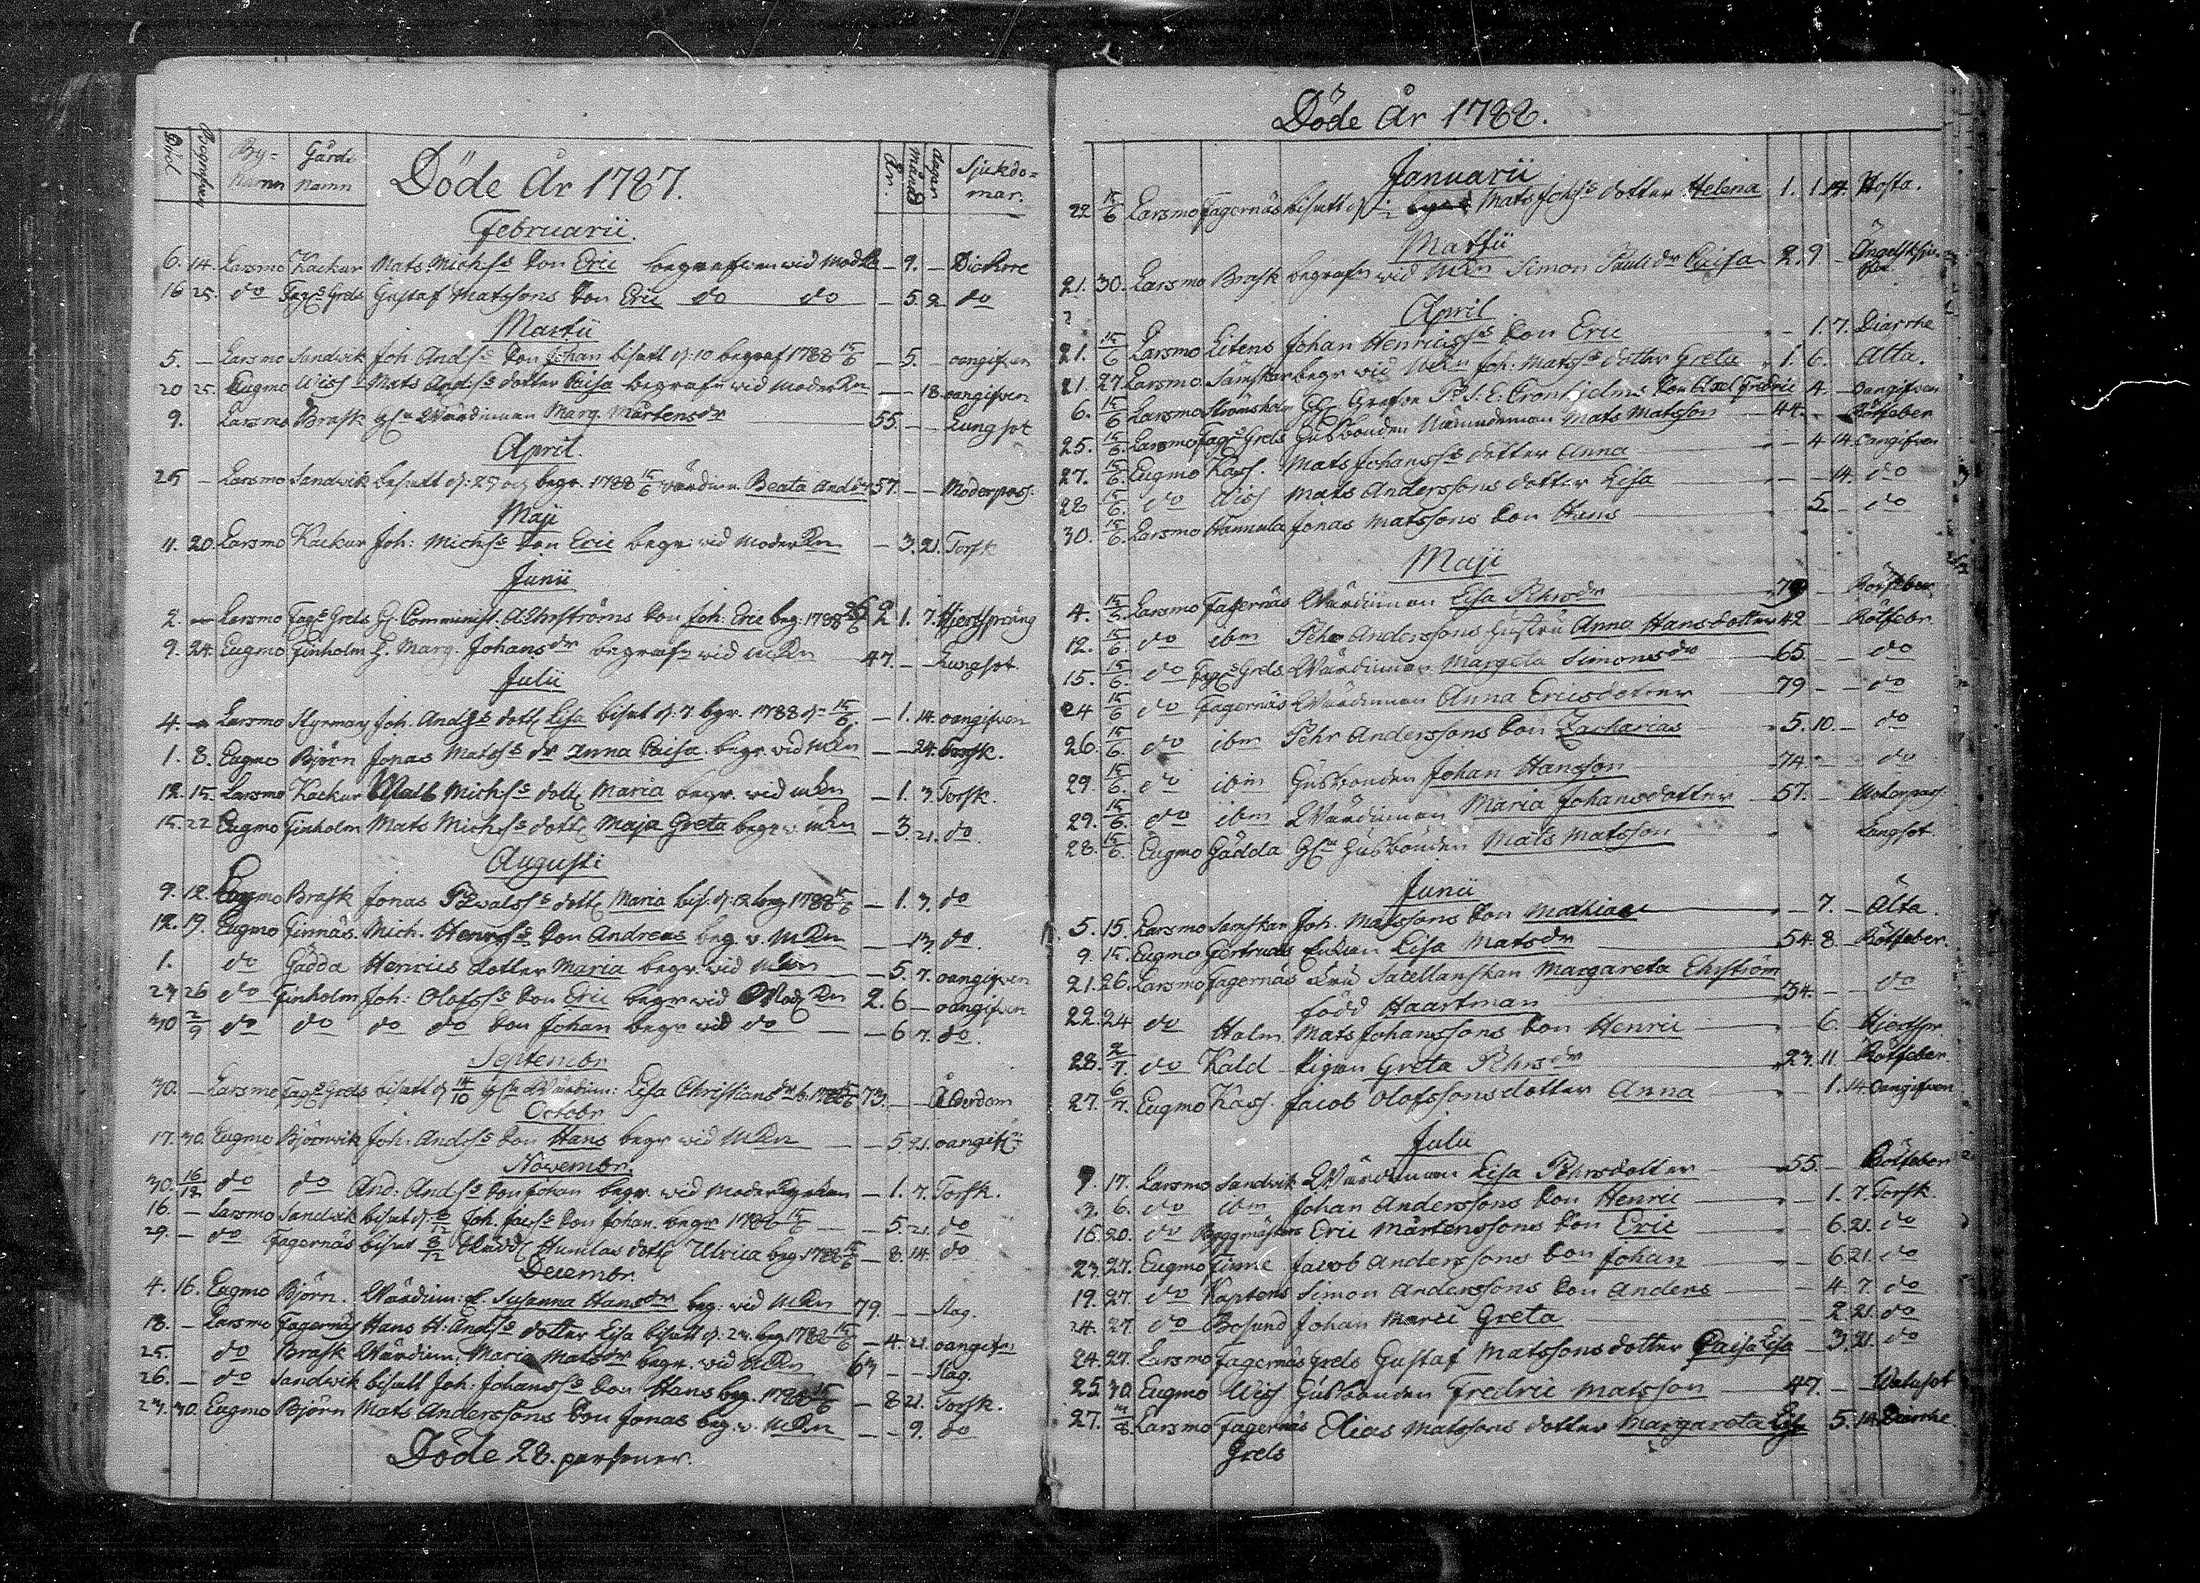 Död. Begrafven By-namn Gårds namn Döde År 1787. År. Månad dagar Sjukdo=mar.
Februarii.
6. 14. Larsmo Kackur Mats Michss Son Eric begrafven wid Mod K – 9. – Diarhee
16 25. do Fags Grels Gustaf Matssons Son Eric do do – 5. 2 do
Martii
5. – Larsmo Sandvik Joh. Andss Son Johan bisatt d. 10 begraf 1788 15/6 – 5. – oangifven
20 25. Eugmo Wiss Mats Andss dotter Caisa begrafn wid Moder Kn – – 18. oangifven
9. Larsmo Brask Wärdinnan Marg. Mårtensdr 55. – – Lungsot
April.
25 – Larsmo Sandvik bisatt d. 27 och begr. 1788 15/6 Wärdin. Beata Andsdr 57. – – Moderpass.
Maji
11. 20. Larsmo Kackur Joh: Michss Son Eric begr. wid Moder Kn – 3. 21. Torsk
Junii
2. – Larsmo Fags Grels Comminist. Ahrströms Son Joh. Eric beg. 1788 2. 1. 7. Hjertsprång
9. 24. Eugmo Finholm H. Marg. Johansdr begrafn wid MKn 47. – Lungsot.
Julii
4. – Larsmo Styrman Joh. Andss dott Lisa bisat d. 7 begr. 1788 d. 15/6. – 1. 14. oangifven
1. 8. Eugmo Björn Jonas Matss dr Anna Caisa begr. wid MKn – – 24. Torsk.
12. 15. Larsmo Kackur Matts Michss dott Maria begr. wid MKn – 1. 3. Torsk.
15. 22 Eugmo Finholm Mats Michss dott Maja Greta begr. v. MKn – 3. 21. do.
Augusti
9. 12. Eugmo Brask Jonas dott Maria bis. d. 12 begr 1788 15/6 – 1. 3. do
12. 19. Eugmo Finnäs. Mich. Henrss Son Andreas beg. v. MKn – – 13. do.
1. do Gädda Henrics dotter Maria begr. wid MKn – 5. 7. oangifven
23 26 do Finholm Joh: Olofss Son Eric begr wid Mod Kn 2. 6 – oangifven
30 2/9 do do do do Son Johan begr wid do – 6 7. do.
Septembr
30. – Larsmo Fags Grels bisatt d 14/10 Wärdin: Lisa Christiansdr b. 1788 15/6 73. – – Ålderdom
Octobr
17. 30. Eugmo Björnvik Joh: Andss Son Hans begr wid MKn – 5. 21. oangifn
Novembr.
30. 16/12 do do And. Andss Son Johan begr wid Moder Kyrkan – 1. 7. Torsk.
16. – Larsmo Sandvik bisatt d 8/12 Joh. Jacss Son Johan. begr 1788 15/6 – 5. 21. do
29. – do Fagernäs bisat 8/12 dott Ulrica beg. 1788 15/6 – 8. 14. do
Decembr.
4. 16. Eugmo Björn. Wärdin: E. Susanna Hansdr beg: wid MKn 79. – – Slag.
18. – Larsmo Fagernäs Hans H: Andss dotter Lisa bisatt d. 23. beg 1788 15/6 – 4. 21. oangifn
25. do Brask Wärdinn: Maria Matsdr begr. wid MKn 67 – – Slag.
26. – do Sandvik bisatt Joh: Johanss Son Hans beg. 1788 15/6 – 8 21. Torsk.
23. 30. Eugmo Björn Mats Anderssons Son Jonas beg. v. MKn – – 9. do
Döde 28. personer.
Döde År 1788.
Januarii
22 15/6 Larsmo Fagernäs bisatt Mats Johss dotter Helena 1. 1. 14. Hosta.
Martii
21. 30. Larsmo Brask begrafn wid MKn Simon Pauli dr Caisa 2. 9 –
April
21. 15/6 Larsmo Litens Johan Henricss Son Eric – 1. 7. Diarrhe
21. 27 Larsmo Sämskar begr wid MKn Joh: Matss dotter Greta 1. 6. Älta.
6. 15/6 Larsmo Strömsholm Grefve Cronhjelms Son Axel Fredric 4. – oangifven
25. 15/6. Larsmo Fags Grels Husbonden Nämndeman Mats Matsson 44. – – Rötfeber
27. 15/6 Eugmo Kass. Mats Johanss dotter Anna – 4 14 oangifven
28 15/6. do Wiss Mats Anderssons dotter Lisa – – 14. do
30. 15/6. Larsmo Hannula Jonas Matssons Son Hans – 5. – do
Maji
4. 15/6. Larsmo Fagernäs Wärdinnan Lisa Pehrsdr 79 – Rötfeber
12. 15/6. do ibm Pehr Anderssons hustru Anna Hansdotter 42 – Rötfebr.
15. 15/6. do Fags Grels Wärdinnan Margeta Simonsdr 65. – – do
24 15/6 do Fagernäs Wärdinnan Anna Ericsdotter 79 – – do
26. 15/6. do ibm Pehr Anderssons Son Zacharias 5. 10. – do
29. 15/6. do ibm Husbonden Johan Hansson 74 – do
29. 15/6. do ibm Wärdinnan Maria Johansdotter 57. – Moderpass.
28. 15/6. Eugmo Gädda Husbonden Mats Matsson Lungsot.
Junii
5. 15. Larsmo Samskar Joh. Matssons Son Mathias – 7. – Älta.
9. 15. Eugmo Gertruds Enkan Lisa Matsdr 54. 8. – Rötfeber.
21. 26. Larsmo Fagernäs Fru Sacellanskan Margareta Ehrström
född Haartman 34. – – do
22. 24 do Holm Mats Johanssons Son Henric – 6. Hjertspr
28. 2/7. do Kald Pigan Greta Pehrsdr 23. 11. Rötfeber
27. 6/7. Eugmo Kass. Jacob Olofssons dotter Anna – 1. 14 oangifven
Julii
9. 17. Larsmo Sandvik Wärdinnan Lisa Pehrsdotter 55. – Rötfeber
3. 6. do ibm Johan Anderssons Son Henric – 1. 7. Torsk.
16. 20. do Byggmästars Eric Mårtenssons Son Eric 6. 21. do
23. 27. Eugmo Finne Jacob Anderssons Son Johan – 6. 21. do
19. 27. do Kaptens Simon Anderssons Son Anders – 4. 7. do
24. 27. do Bosund Johan Marci Greta 2. 21. do
24. 27. Larsmo Fagernäs Grels Gustaf Matssons dotter Caisa Lisa – 3. 21. do
25. 30. Eugmo Wiss Husbonden Fredric Matsson 47. – – Watusot
27. Larsmo Fagernäs Elias Matssons dotter Margareta Lisa 5. 14 Diarrhe
Grels